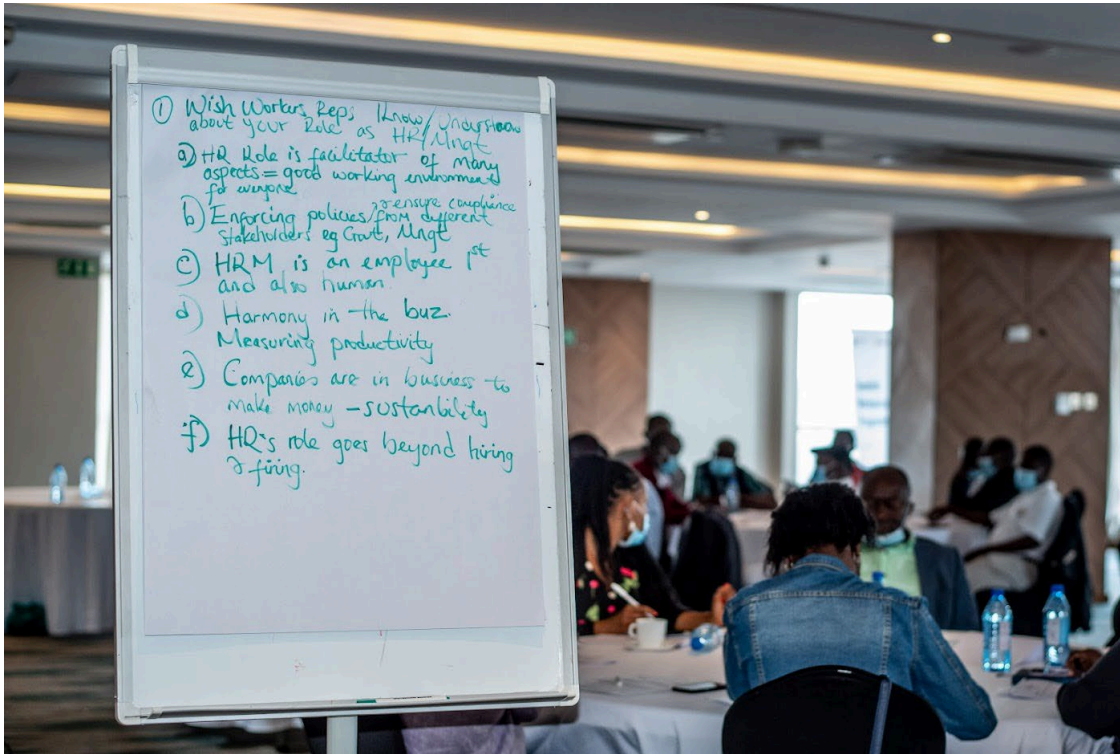 ① Wish Workers Reps Know/Understood
about your Role as HR/Mngt
a) HR Role is facilitator of many
aspects = good working environments
for everyone
b) Enforcing policies/from different
& ensure compliance
stakeholders eg Govt, Mngt
c) HRM is an employee 1st
and also human.
d) Harmony in the buz.
Measuring productivity
e) Companies are in business to
make money - sustanbility
f) HR's role goes beyond hiring
& firing.